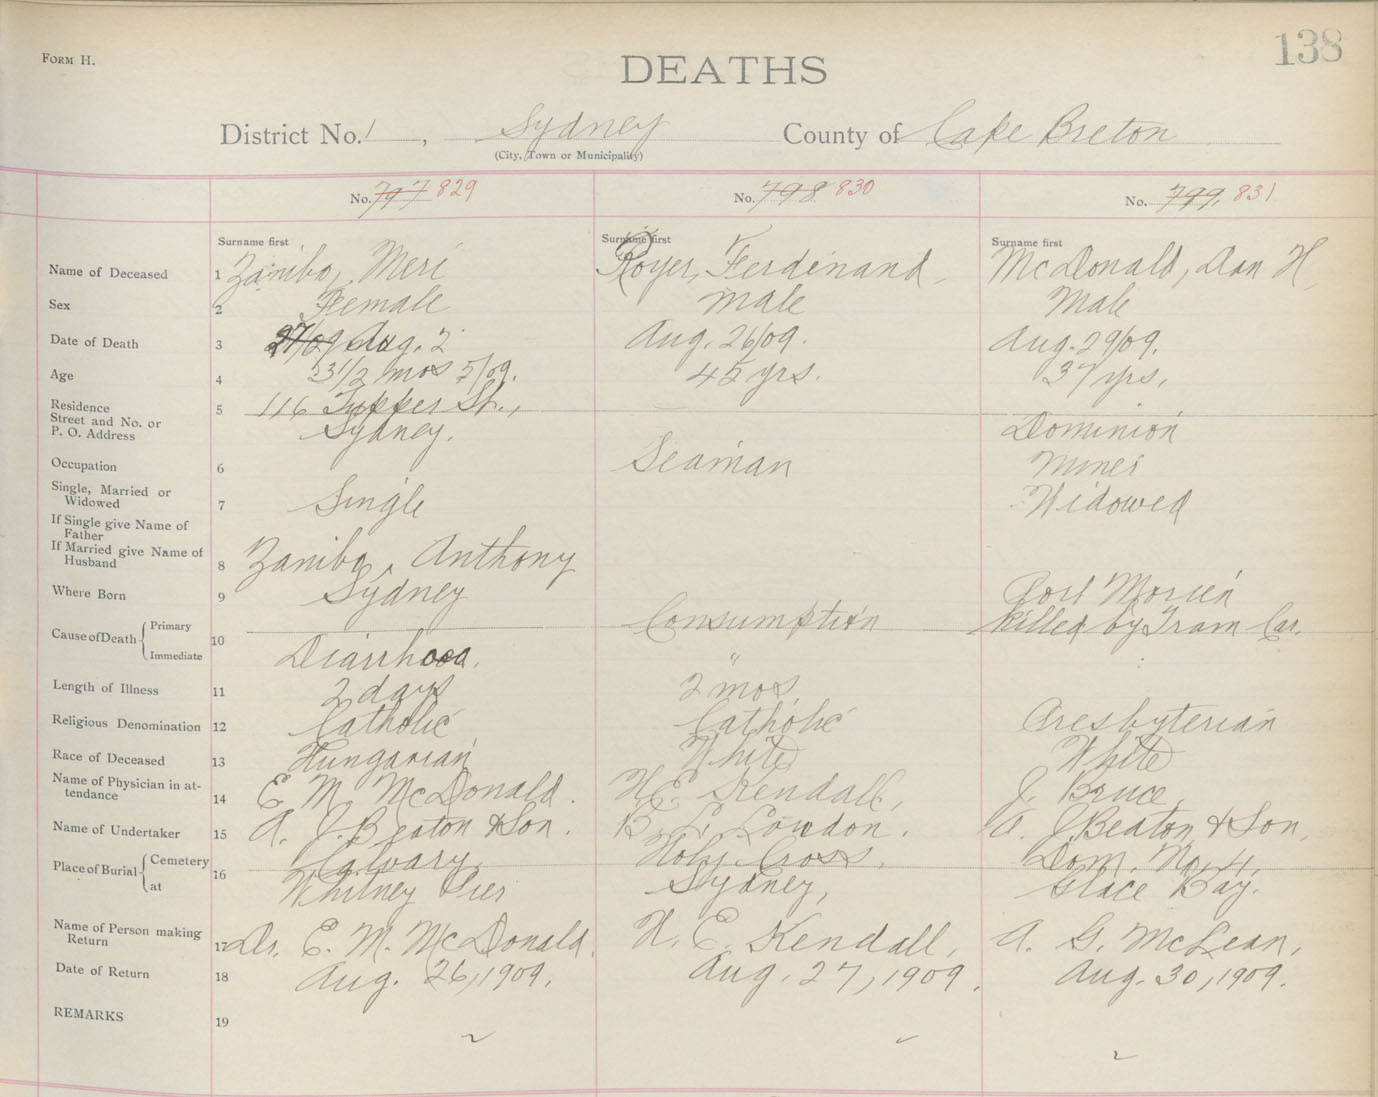 138
FORM H.
DEATHS
District No. 1, Sydney County of Cape Breton
(City, Town or Municipality)
No. 797 829 No. 798 830 No. 799 831
Surname first Surname first Surname first
Name of Deceased 1 Zaniba, Meri Royer, Ferdinand, McDonald, Dan H,
Sex 2 Female Male Male
Date of Death 3 Aug. 2 Aug. 26/09. Aug. 29/09.
Age 4 3 1/2 mos 5/09. 45 yrs. 37 yrs,
Residence
Street and No. or
P. O. Address 5 116 Tupper St.,
Sydney. Dominion
Occupation 6 Seaman Miner
Single, Married or
Widowed 7 Single Widowed
If Single give Name of
Father
If Married give Name of
Husband 8 Zaniba, Anthony
Where Born 9 Sydney Port Morien
Cause of Death Primary 10 Consumption Killed by Tram Car.
Immediate Diarrhoea. "
Length of Illness 11 2 days 2 mos
Religious Denomination 12 Catholic Catholic Presbyterian
Race of Deceased 13 Hungarian White White
Name of Physician in at-
tendance 14 E M McDonald. H E Kendall, J. Bruce,
Name of Undertaker 15 A. J. Beaton & Son. B. L. Lowdon. A. J. Beaton & Son,
Place of Burial Cemetery 16 Calvary, Holy Cross, Dom. No. 4,
at Whitney Pier Sydney, Glace Bay.
Name of Person making
Return 17 Dr. E. M. McDonald. H. E. Kendall, A. G. McLean,
Date of Return 18 Aug. 26, 1909. Aug. 27, 1909. Aug. 30, 1909.
REMARKS 19